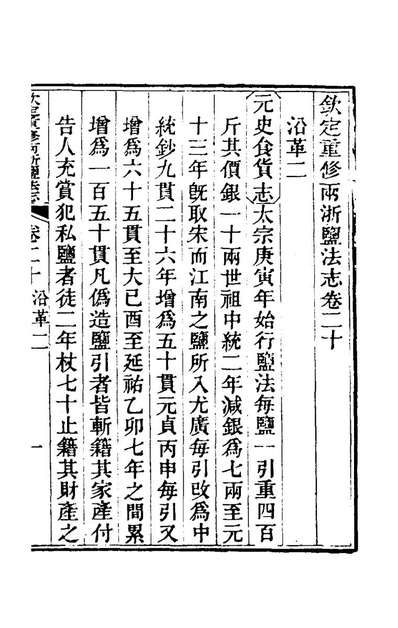 欽定重修兩浙鹽法志卷二十
沿革二
元史食貨志太宗庚寅年始行鹽法每鹽一引重四百
斤其價銀一十兩世祖中統二年減銀爲七兩至元
十三年旣取宋而江南之鹽所入尤廣每引改爲中
統鈔九貫二十六年增爲五十貫元貞丙申每引又
增爲六十五貫至大己酉至延祐乙卯七年之間累
增爲一百五十貫凡僞造鹽引者皆斬籍其家產付
告人充賞犯私鹽者徒二年杖七十止籍其財產之
欽定重修兩浙鹽法志 卷二十 沿革二 一